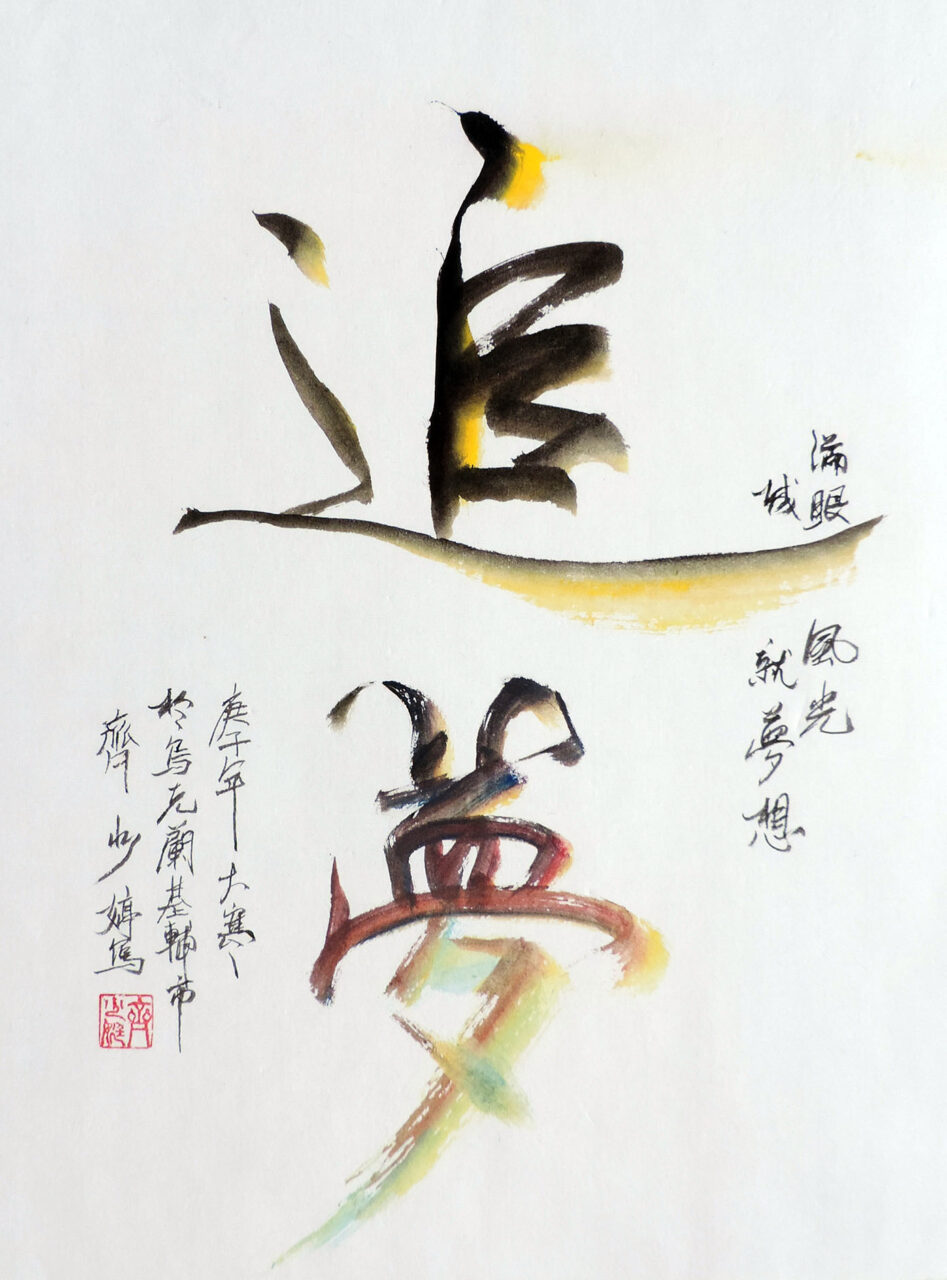 滿眼風光
城就夢想
追夢
庚子年大寒
於烏克蘭基輔市
齊少婷寫